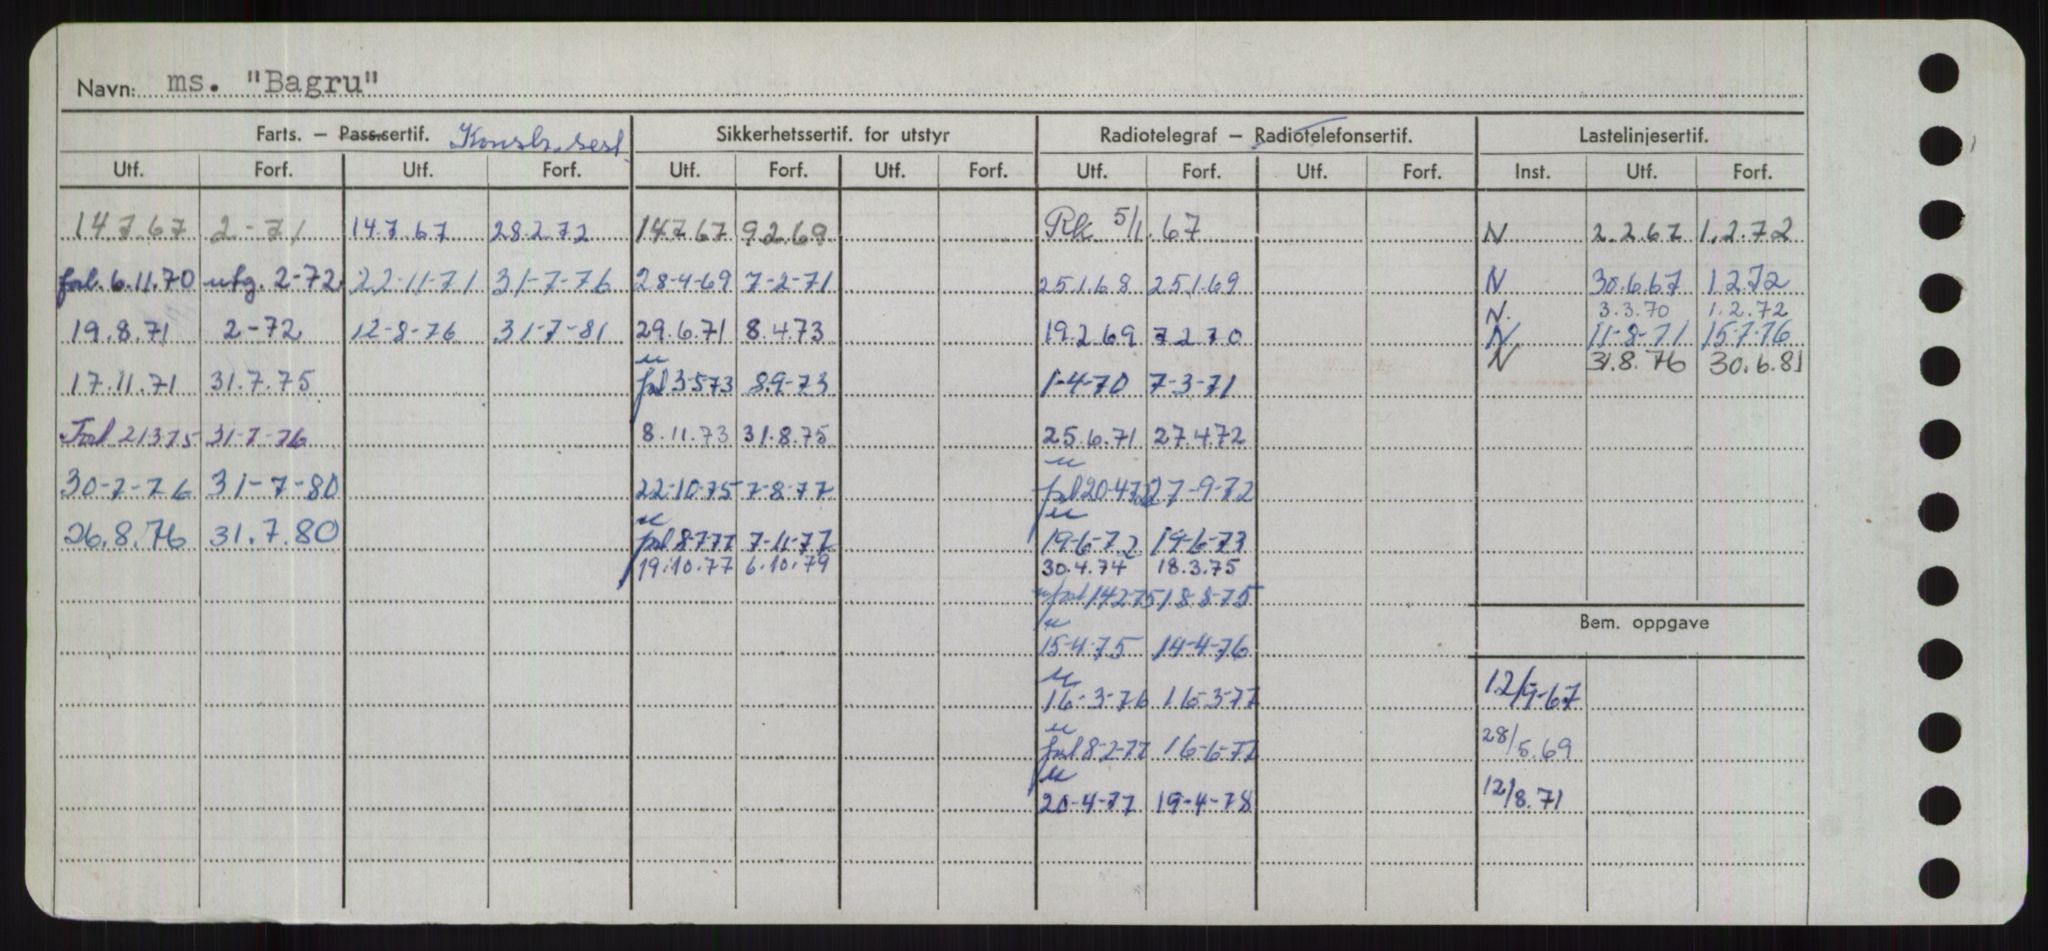 Navn: ms. "Bagru"
Farts. – Passsertif. Konstr. sert. Sikkerhetssertif. for utstyr Radiotelegraf – Radiotelefonsertif. Lastelinjesertif.
Utf. Forf. Utf. Forf. Utf. Forf. Utf. Forf. Utf. Forf. Utf. Forf. Inst. Utf. Forf.
14.7.67 2-71 14.7.67 28.2.72 14.7.67 9.2.69 Rk 5/1.67 N 2.2.67 1.2.72
forl. 6.11.70 utg. 2-72 22-11-71 31-7-76 28-4-69 7-2-71 25.1.68 25.1.69 N 30.6.67 1.2.72
N. 3.3.70 1.2.72
19.8.71 2-72 12-8-76 31-7-81 29.6.71 8.4.73 19.2.69 7.2.70 N 11-8-71 15-7-76
N 31.8.76 30.6.81
17.11.71 31.7.75 " forl 3-5-73 8.9-73 1-4-70 7-3-71
Forl 21.3.75 31-7-76 8.11.73 31.8.75 25.6.71 27.4.72
30-7-76 31-7-80 22-10-75 7-8-77 " forl 20-4-72 27-9-72
26.8.76 31.7.80 " forl 8-7-77 7-11-77 " 19-6-72 19-6-73
19.10.77 6.10.79 30.4.74 18.3.75
" forl 14.2.75 18-8-75
Bem. oppgave
" 15-4-75 14-4-76
" 16-3-76 16-3-77 12/9-67
" forl 8-2-77 16-6-77 28/5.69
" 20-4-77 19-4-78 12/8.71